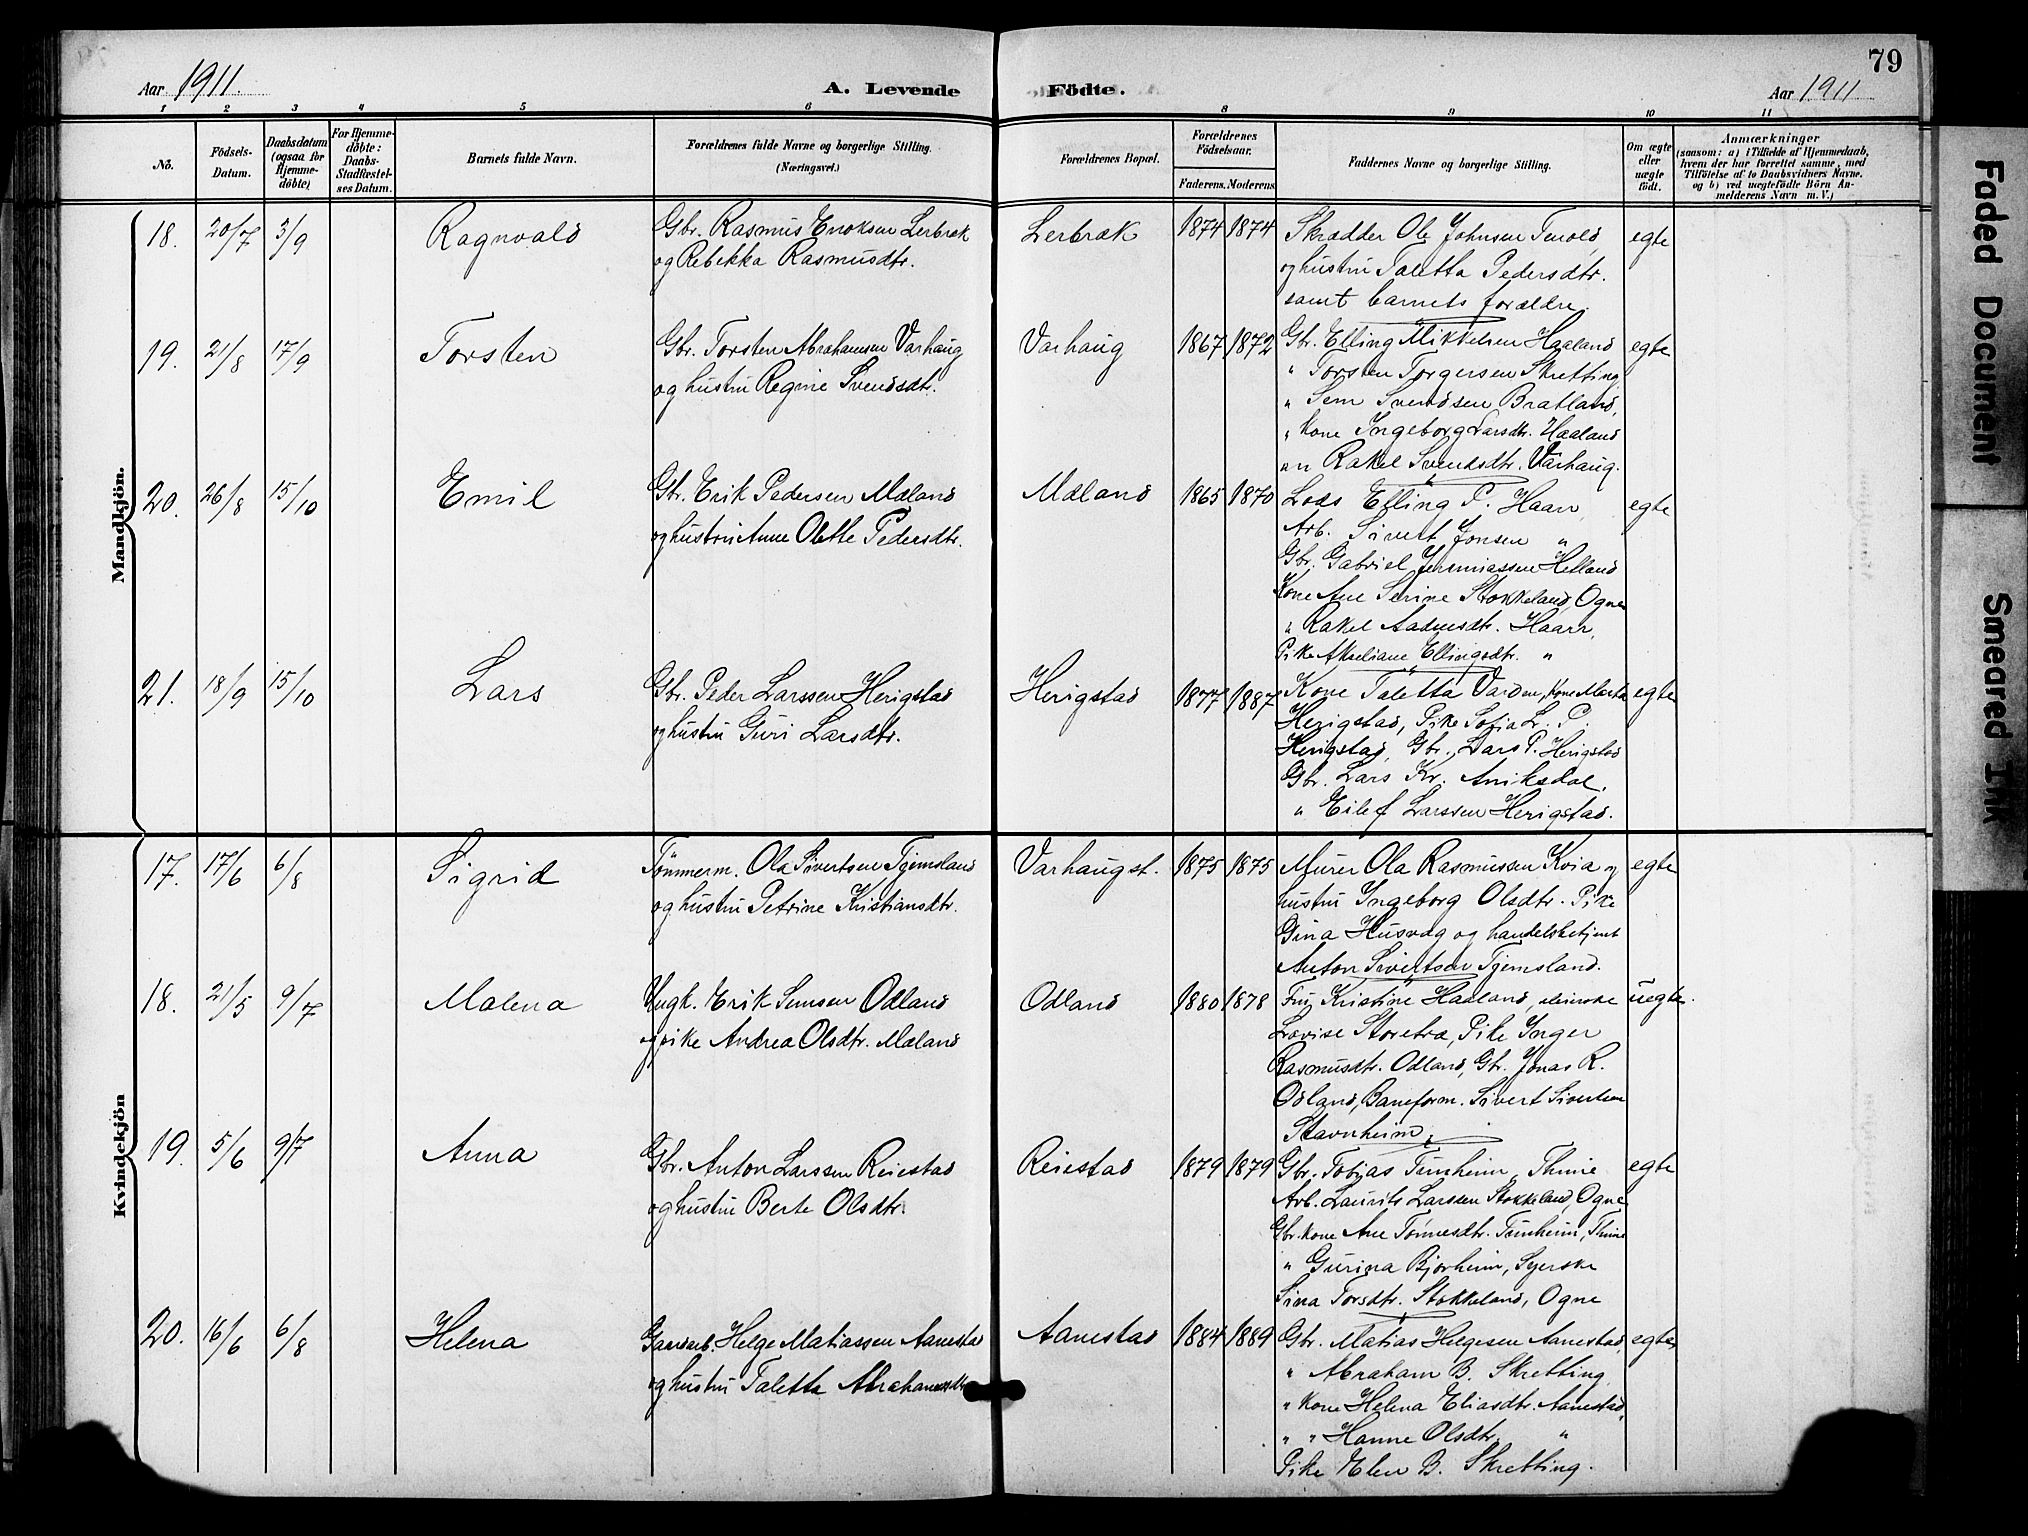 79
Aar 1911.
A. Levende Födte.
Aar 1911
1 2 3 4 5 6 8 9 10 11
No.
Födsels-Datum.
Daabsdatum (ogsaa for Hjemme-döbte)
For Hjemme-döbte: Daabs-Stadfæstel-ses Datum.
Barnets fulde Navn.
Forældrenes fulde Navne og borgerlige Stilling.
(Næringsvei.)
Forældrenes Bopæl.
Forældrenes Födselsaar.
Faderens. Moderens
Faddernes Navne og borgerlige Stilling.
Om ægte eller uægte födt.
Anmærkninger
(saasom: a) i Tilfælde af Hjemmedaab,
hvem der har forrettet samme, med
Tilföielse af to Daabsvidners Navne.
og b) ved uægtefödte Börn An-
melderens Navn m. V.)
Mandkjön.
18. 20/7 3/9 Ragnvald
Gbr. Rasmus Enoksen Lerbræk
og Rebekka Rasmusdtr.
Lerbræk 1874 1874
Skrædder Ole Johnsen egte
og hustru Taletta Pedersdtr.
samt barnets forældre.
19. 21/8 17/9 Torsten
Gbr. Torsten Abrahamsen Varhaug
og hustru Regine Svendsdtr.
Varhaug 1867 1872
Gbr. Elling Mikkelsen Haaland egte
" Torsten Torgersen Skretting
" Sem Svendsen Bratland,
" Kone Ingeborg Larsdtr. Haaland
" " Rakel Svendsdtr. Varhaug.
20. 26/8 15/10 Emil
Gbr. Erik Pedersen Mæland
og hustru Anne Olette Pedersdtr.
Mæland 1865 1870
Lods Elling P. Haar, egte
Arb. Sivert Jonsen "
Gbr. Gabriel Jeremiassen Helland
Kone Ane Serine Stokkeland, Ogne
" Rakel Aadnesdtr. Haar,
Pike Akseliane Ellingsdtr. "
21. 18/9 15/10 Lars
Gbr. Peder Larssen Herigstad
og hustru Guri Larsdtr.
Herigstad 1877 1887
Kone Taletta Varden, Kone Marta egte
Herigstad, Pike Sofia L. P.
Herigstad, Gbr. Lars P. Herigstad
Gbr. Lars Kr. Aniksdal.
" Eilef Larssen Herigstad.
Kvindekjön
17. 17/6 6/8 Sigrid
Tømmerm. Ola Sivertsen Tjemsland
og hustru Petrine Kristiansdtr.
Varhaugst. 1875 1875
Murer Ola Rasmussen Kvia og egte
hustru Ingeborg Olsdtr. Pike
Gina Husvæg og handelsbetjent
Anton Sivertsen Tjemsland.
18. 21/5 9/7 Malena
Ungk. Erik Semsen Odland
og pike Andrea Olsdtr. Mæland
Odland 1880 1878
Fru Kristine Haaland, uegte.
Lovise Storetra, Pike Inger
Rasmusdtr. Odland, Gbr. Jonas R.
Odland, Baneform. Sivert Sivertsen
Stavnheim,
19. 5/6 9/7 Anna
Gbr. Anton Larssen Reiestad
og hustru Berte Olsdtr.
Reiestad 1879 1879
Gbr. Tobias Tunheim, Thime egte
Arb. Laurits Larssen Stokkeland, Ogne
Gbr.kone Ane Tønnesdtr. Tunheim, Thime
" Gurina Bjorheim, Syerske
Sina Torsdtr. Stokkeland, Ogne
20. 16/6 6/8 Helena
Gaardarb. Helge Matiassen Aanestad
og hustru Taletta Abrahamsdtr
Aanestad 1884 1889
Gbr. Matias Helgesen Aanestad, egte
" Abraham B. Skretting
" Kone Helena Eliasdtr. Aanestad,
" " Hanne Olsdtr. "
Pike Elen B. Skretting.
Faded Document
Smeared Ink